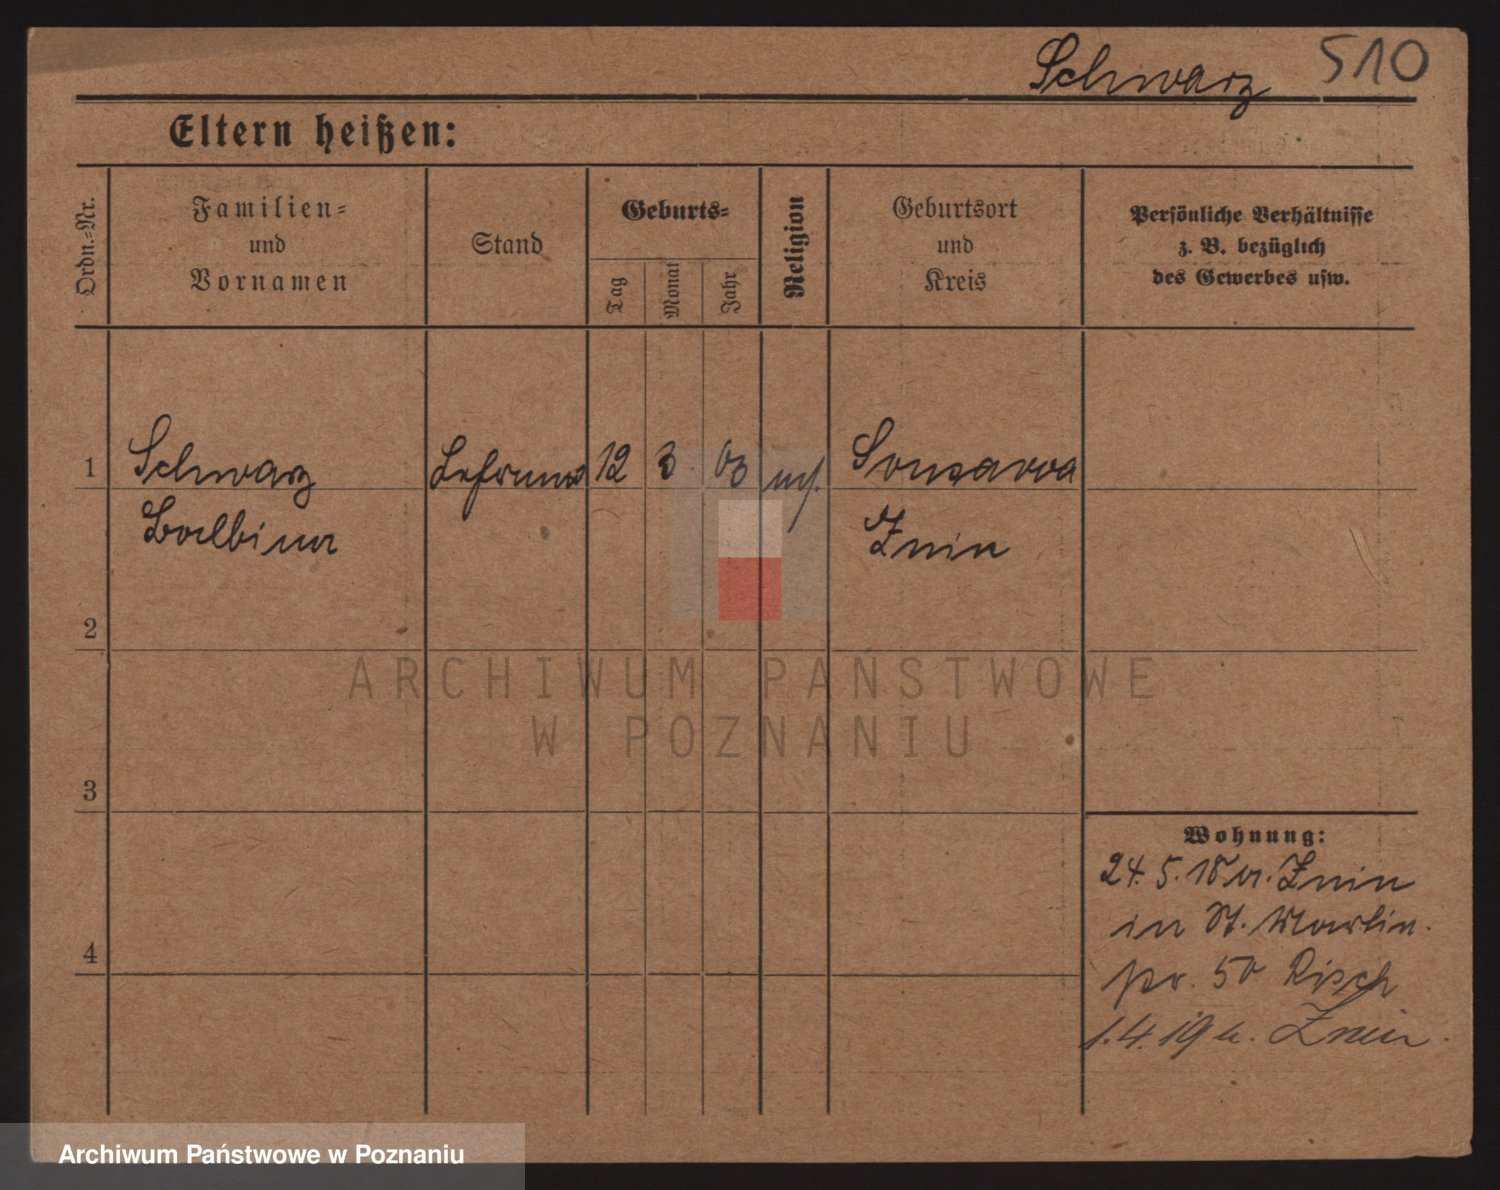 Schwarz 510
Eltern heißen:
Ordn.-Nr.
Familien-
und
Vornamen
Stand
Geburts-
Tag
Monat
Jahr
Religion
Geburtsort
und
Kreis
Persönliche Verhältnisse
z. B. bezüglich
des Gewerbes usw.
1 Schwarz 12 3 03
Balbina Znin
2
3
4
Wohnung:
24. 5. 18 v. Znin
in St. Martin.
50 Risch
1. 4. 19 n. Znin.
ARCHIWUM PAŃSTWOWE
W POZNANIU
Archiwum Państwowe w Poznaniu